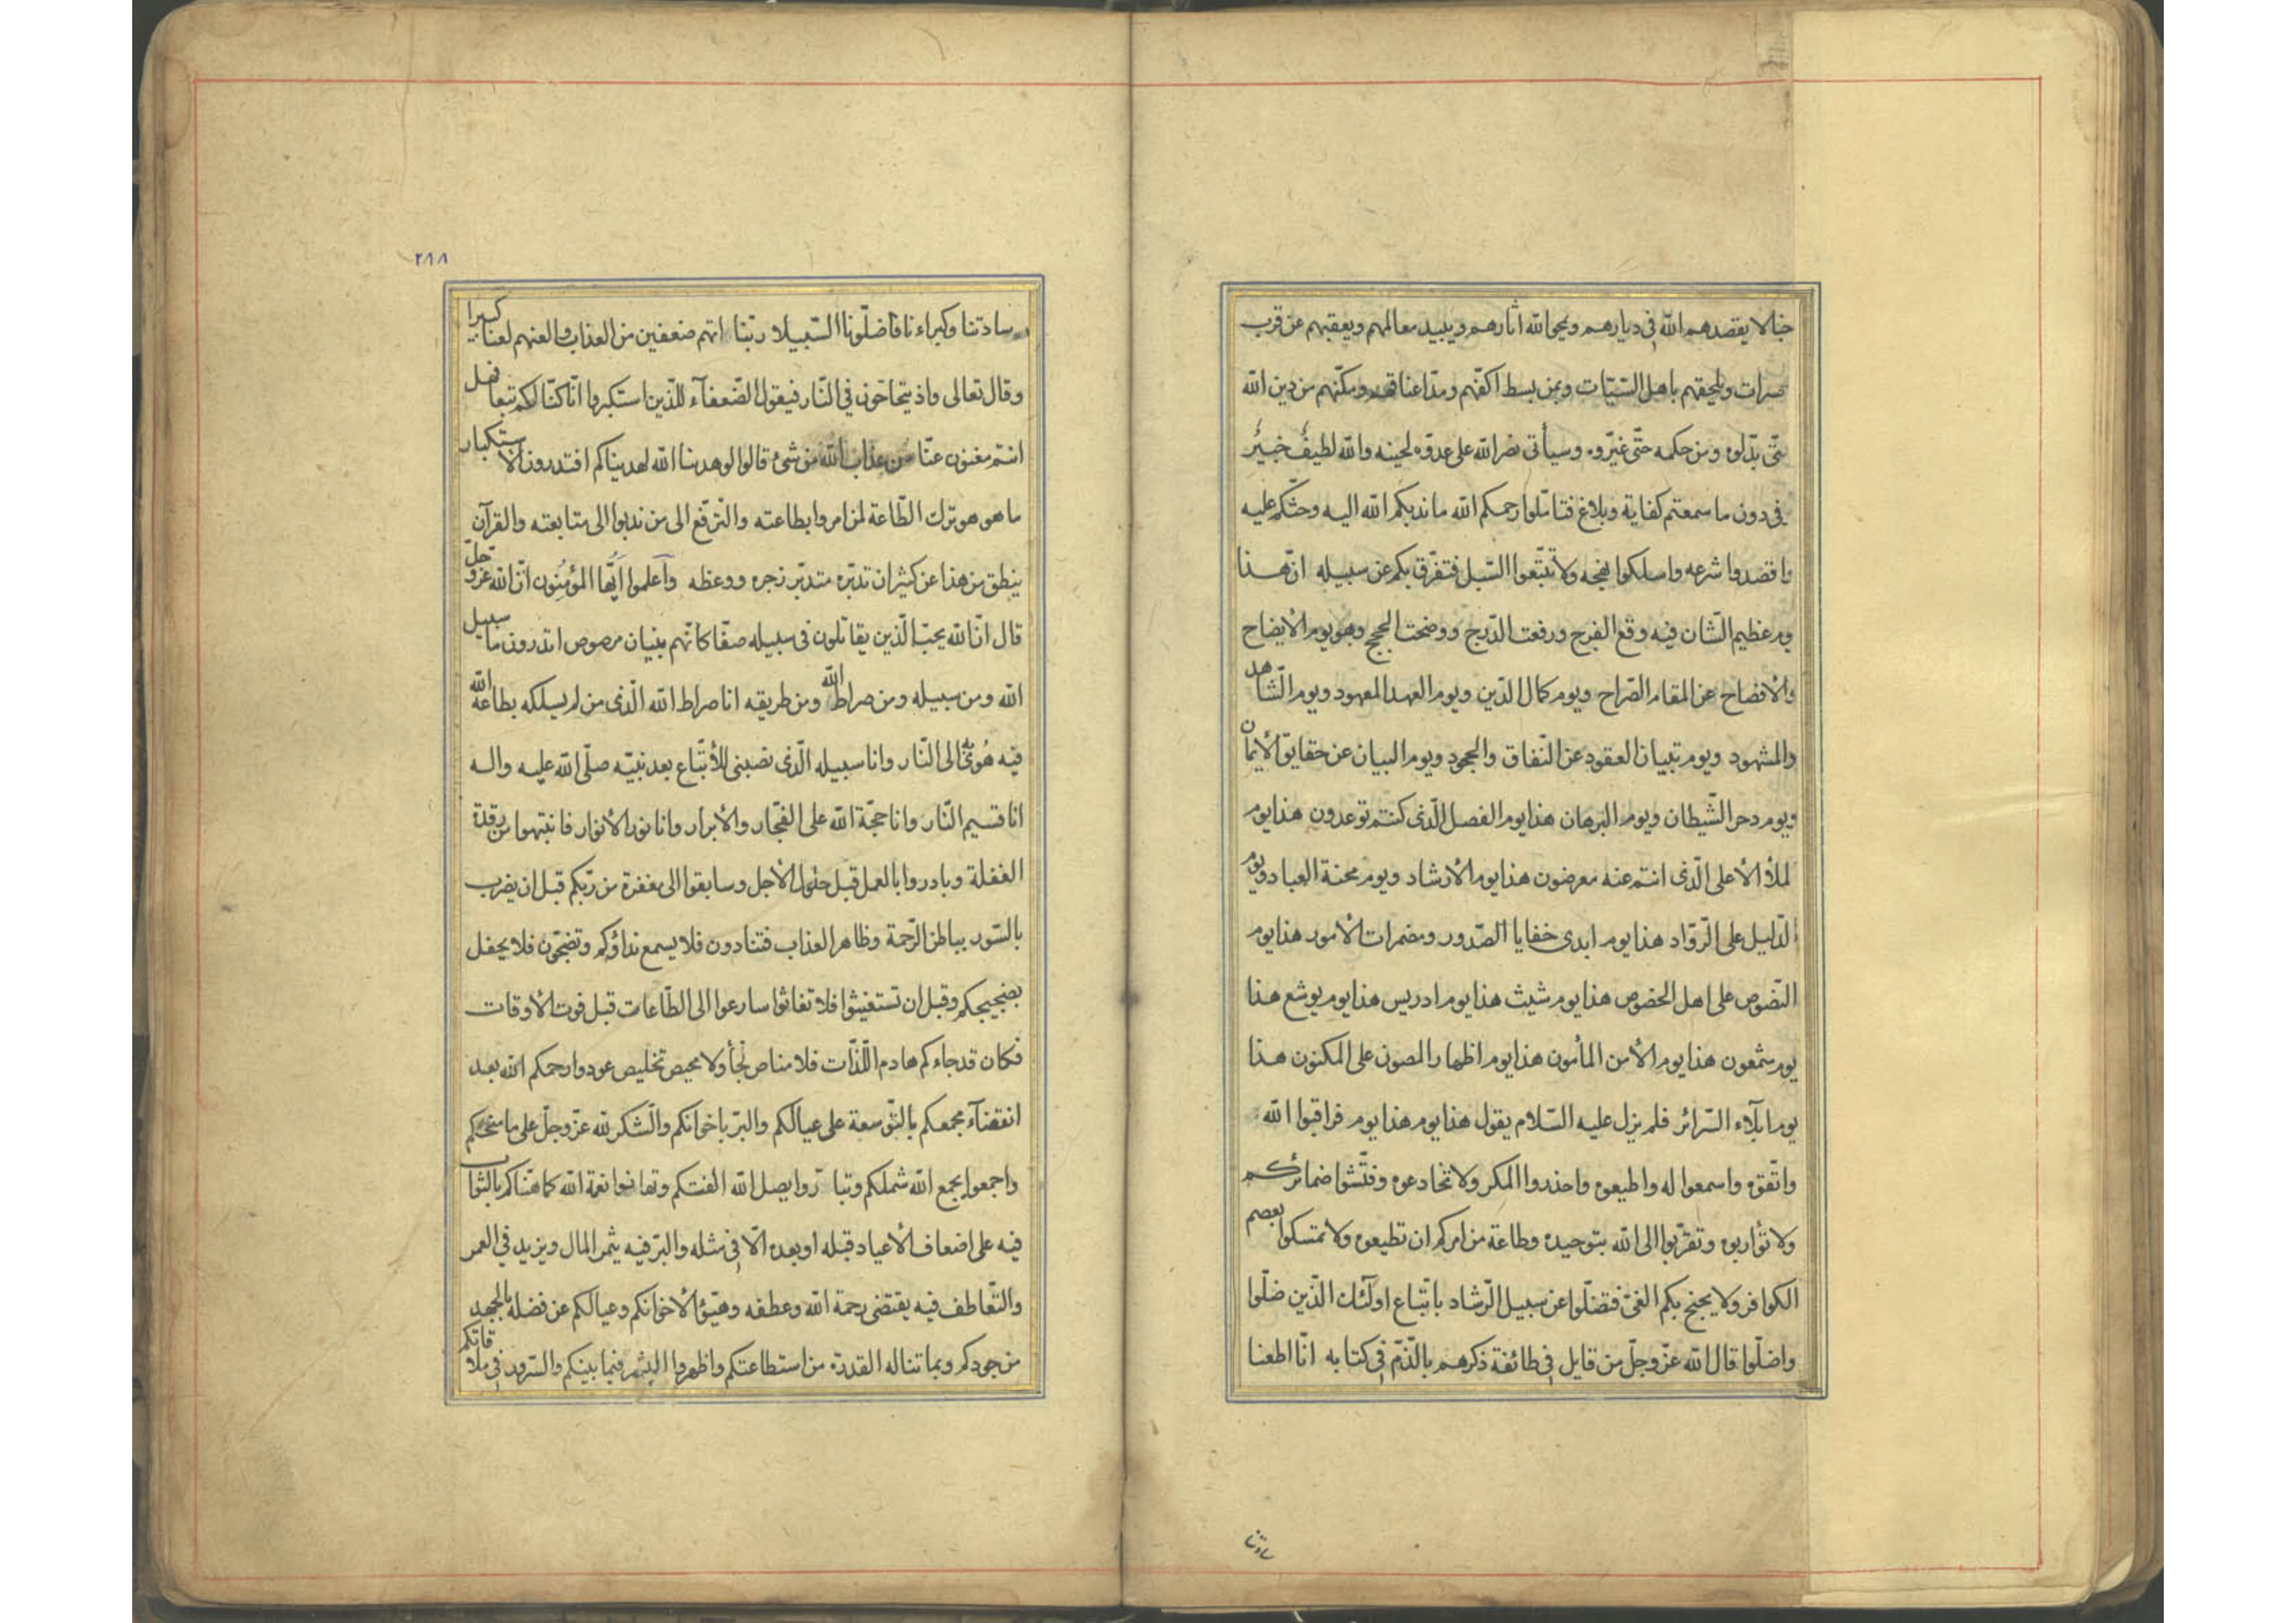 حثالا يقصدهم الله في ديارهم ويمحوا لله اثارهم ويبيد معالمهم ويعقبهم عن قرب
حسرات ويلحقهم باهل السيّئات وبمن بسط اكفّهم ومدّ اعناقهم ومكّنهم من دين الله
حتّى بدّلوه ومن حكمه حتّى غيّروه وسيأتى نصر الله على عدوّه لحينه والله لطيفٌ خبيرٌ
فى دون ما سمعتم كفاية وبلاغ فتامّلوا رحمكم الله ما ندبكم الله اليه وحثّكم عليه
واقصدوا شرعه واسلكوا نهجه ولا تتّبعوا السّبل فتفرّق بكم عن سبيله انّ هذا
يوم عظيم الشّان فيه وقع الفرج ورفعت الدّرج ووضحت الحجج وهو يوم الأيضاح
والأفصاح عن المقام الصّراح ويوم كمال الدّين ويوم العهد المعهود ويوم الشّاهد
والمشهود ويوم تبيان العقود عن النّفاق والجحود ويوم البيان عن حقايق الأيمان
ويوم دحر الشّيطان ويوم البرهان هذا يوم الفصل الّذى كنتم توعدون هذا يوم
لملأ الأعلى الّذى انتم عنه معرضون هذا يوم الأرشاد ويوم محنة العباد ويوم
الدّليل على الرّوّاد هذا يوم ابدى خفايا الصّدور ومضمرات الأمور هذا يوم
النّصوص على اهل الخصوص هذا يوم شيث هذا يوم ادريس هذا يوم يوشع هذا
يوم شمعون هذا يوم الأمن المأمون هذا يوم اظهار المصون على المكنون هذا
يوم ابلاء السّرائر فلم يزل عليه السّلام يقول هذا يوم هذا يوم فراقبوا الله
واتّقوه واسمعوا له واطيعوه واحذروا المكر ولا تخادعوه وفتّشوا ضمائركم
ولا تؤاربوه وتقرّبوا الى الله بتوحيده وطاعة من امركم ان تطيعوه ولا تمسكوا بعصم
الكوافر ولا يجنح بكم الغىّ فتضلّوا عن سبيل الرّشاد باتّباع اولئك الّذين ضلّوا
واضلّوا قال الله عزّ وجلّ من قايل فى طائفة ذكرهم بالذّمّ فى كتابه انّا اطعنا
سادتنا
٢٨٨
سادتنا وكبراءنا فاضلّونا السّبيلا ربّنا اتهم ضعفين من العذاب والعنهم لعنا كبيرا
وقال تعالى واذ يتحاجّون فى النّار فيقول الضّعفآء للّذين استكبروا انّا كنّا لكم تبعا فهل
انتم مغنون عنّا من عذاب الله من شىء قالوا لو هدينا الله لهديناكم افتدرون الاستكبار
ما هو هو ترك الطّاعة لمن امروا بطاعته والترفّع الى من ندبوا الى متابعته والقرآن
ينطق من هذا عن كثير ان تدبّره متدبّر زجره ووعظه واعلموا ايّها المؤمنون انّ الله عزّ وجلّ
قال انّ الله يحبّ الّذين يقاتلون فى سبيله صفّا كانّهم بنيان مرصوص اتدرون ما سبيل
الله ومن سبيله ومن صراط الله ومن طريقه انا صراط الله الّذى من لم يسلكه بطاعة الله
فيه هُوِىَ به الى النّار وانا سبيله الّذى نصبنى للأتّباع بعد نبيّه صلّى الله عليه واله
انا قسيم النّار وانا حجّة الله على الفجّار والأبرار وانا نور الأنوار فانتبهوا من رقدة
الغفلة وبادروا بالعمل قبل حلول الأجل وسابقوا الى مغفرة من ربّكم قبل ان يضرب
بالسّور بباطن الرّحمة وظاهر العذاب فتنادون فلا يسمع نداؤكم وتضجّون فلا يحفل
بضجيجكم وقبل ان تستغيثوا فلا تغاثوا سارعوا الى الطّاعات قبل فوت الأوقات
فكان قد جاءكم هادم اللّذّات فلا مناص نجأ ولا محيص تخليص عودوا رحمكم الله بعد
انقضآء مجمعكم بالتّوسعة على عيالكم والبرّ باخوانكم والشّكر لله عزّ وجلّ على ما منحكم
واجمعوا يجمع الله شملكم وتبارّوا يصل الله الفتكم وتهانوا نعمة الله كما هنّاكم بالثواب
فيه على اضعاف الأعياد قبله او بعده الّا فى مثله والبرّ فيه يثمر المال ويزيد فى العمر
والتّعاطف فيه يقتضى رحمة الله وعطفه وهيّؤا لأخوانكم وعيالكم عن فضله بالجهد
من جودكم وبما تناله القدرة من استطاعتكم واظهروا البشر فيما بينكم والسّرور فى ملاقاتكم